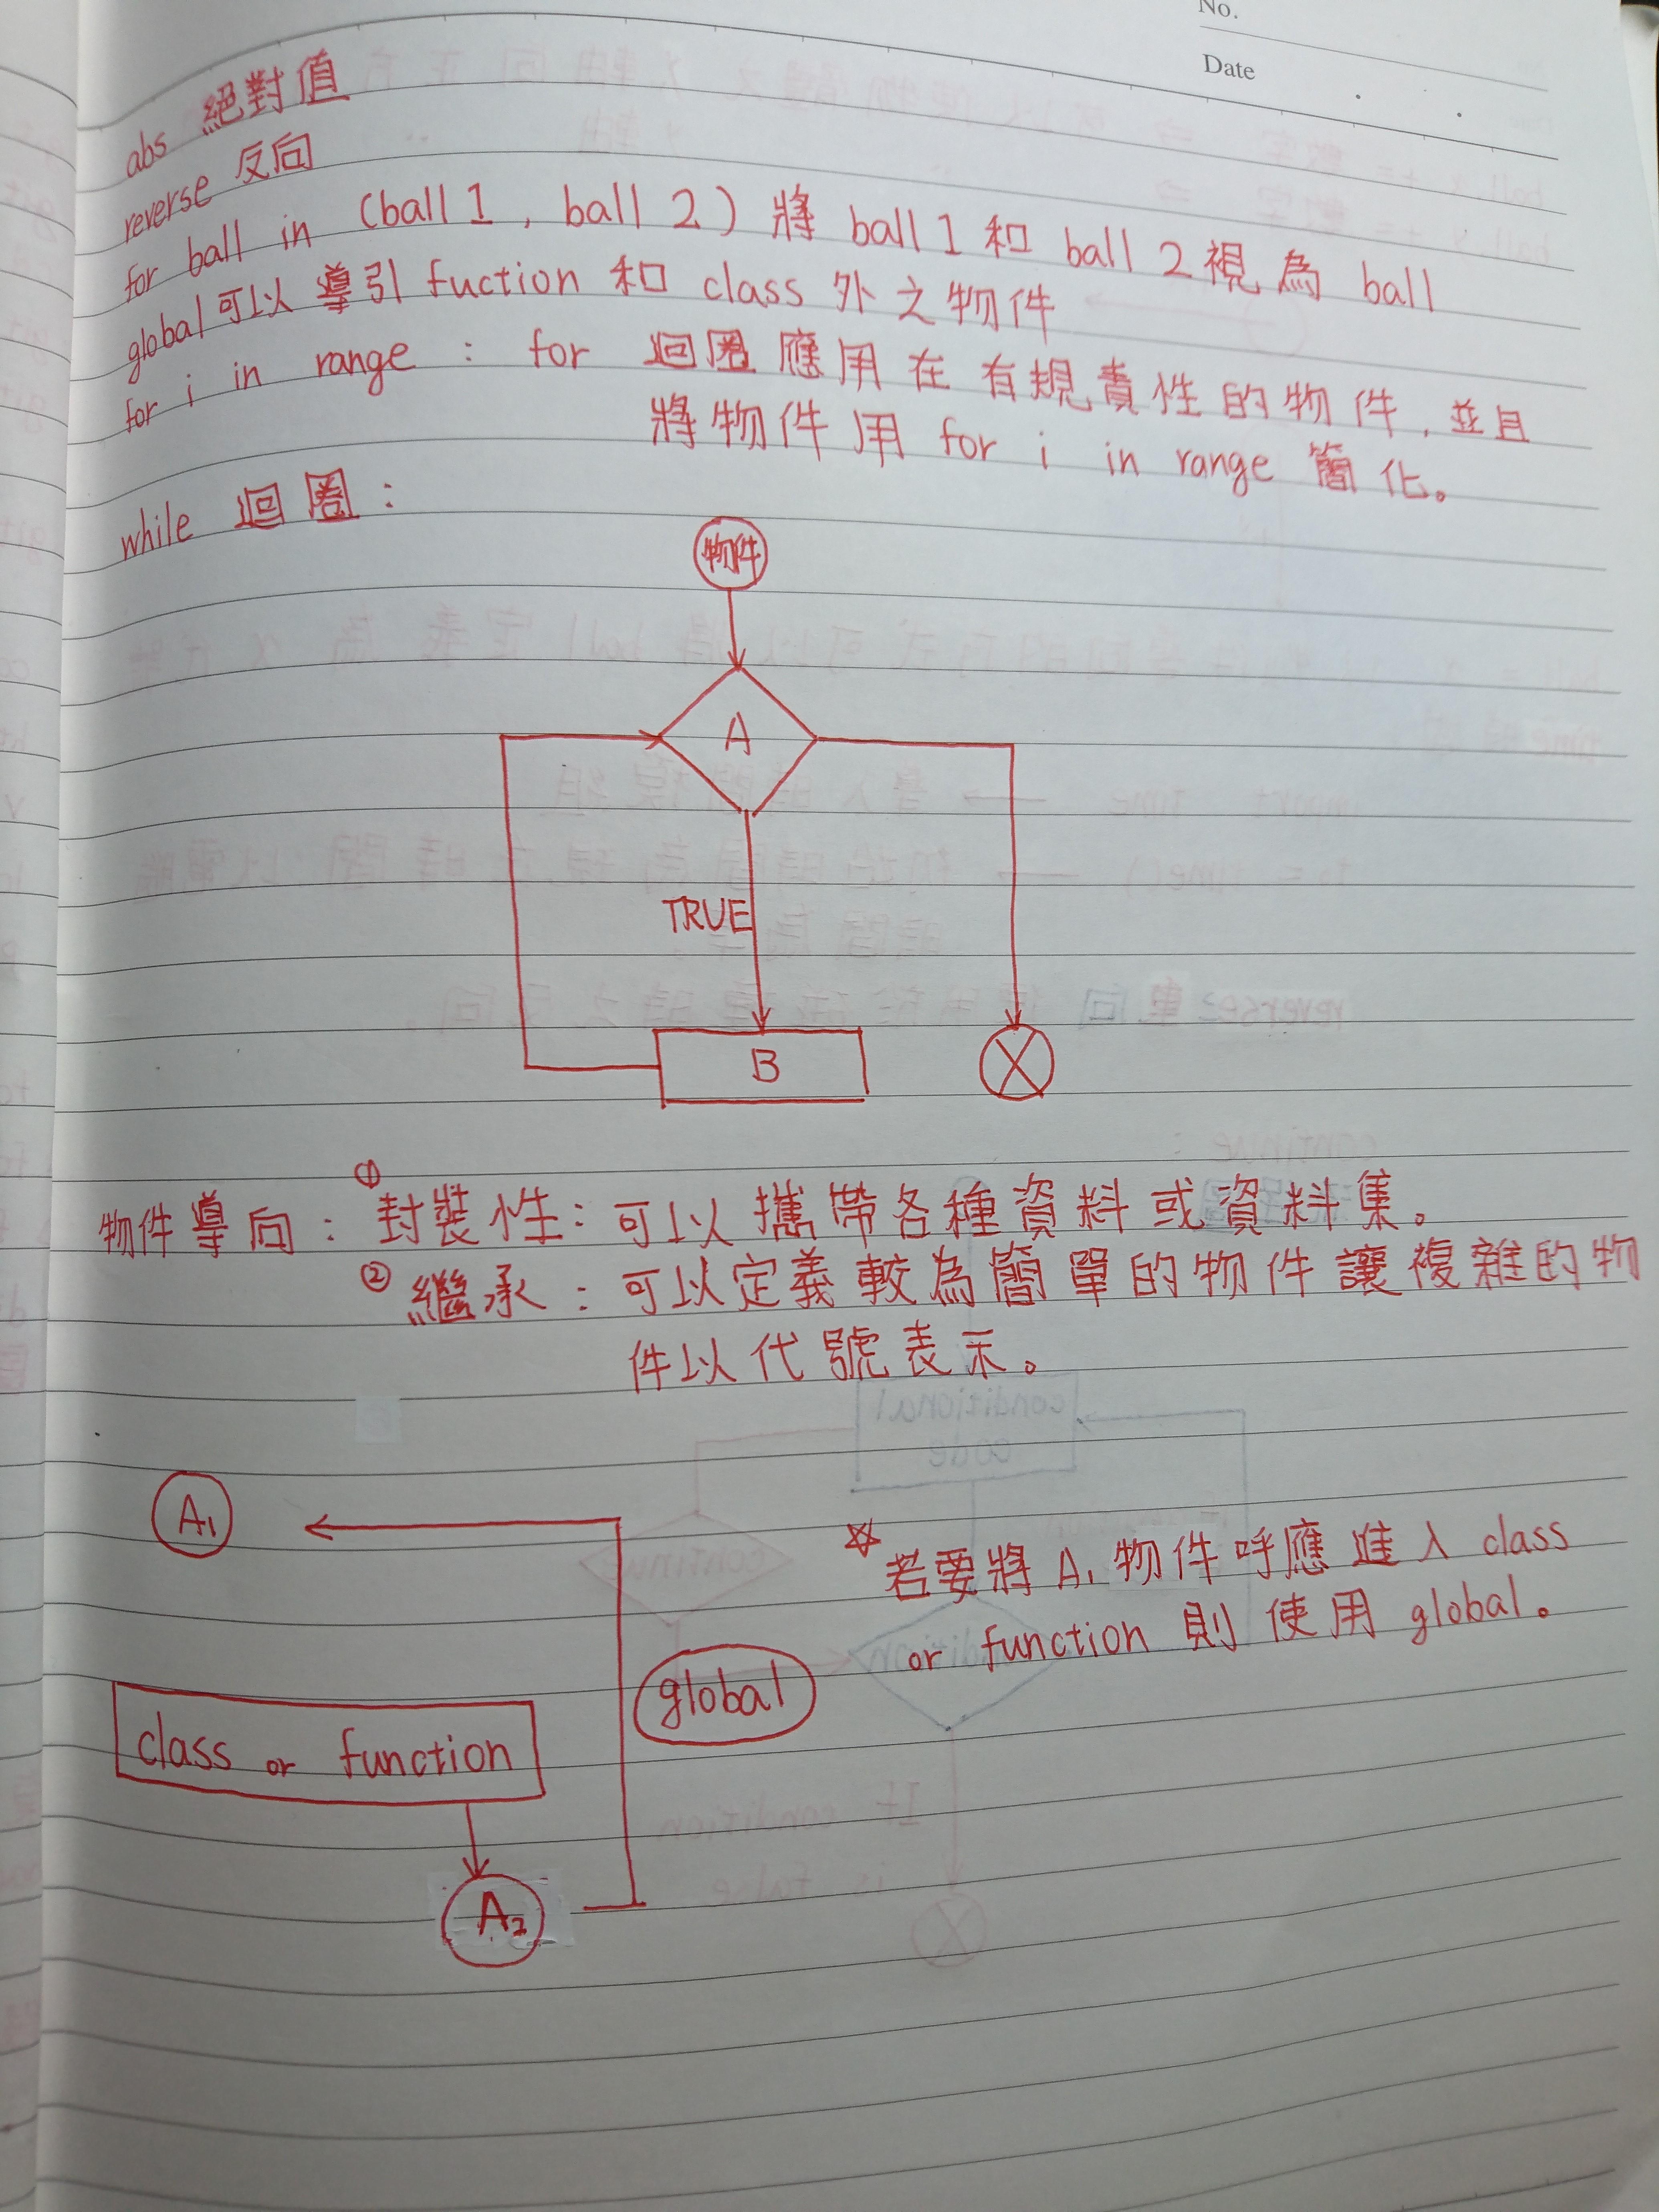 No.
Date
abs 絕對值
reverse 反向
for ball in (ball 1 , ball 2) 將 ball 1 和 ball 2 視為 ball
global 可以導引 fuction 和 class 外之物件
for i in range : for 迴圈應用在有規責性的物件, 並且
將物件用 for i in range 簡化。
while 迴圈 :
物件
A
TRUE
B
物件導向 : ① 封裝性 : 可以攜帶各種資料或資料集。
② 繼承 : 可以定義較為簡單的物件讓複雜的物
件以代號表示。
A₁
☆ 若要將 A₁ 物件呼應進入 class
or function 則使用 global。
global
class or function
A₂